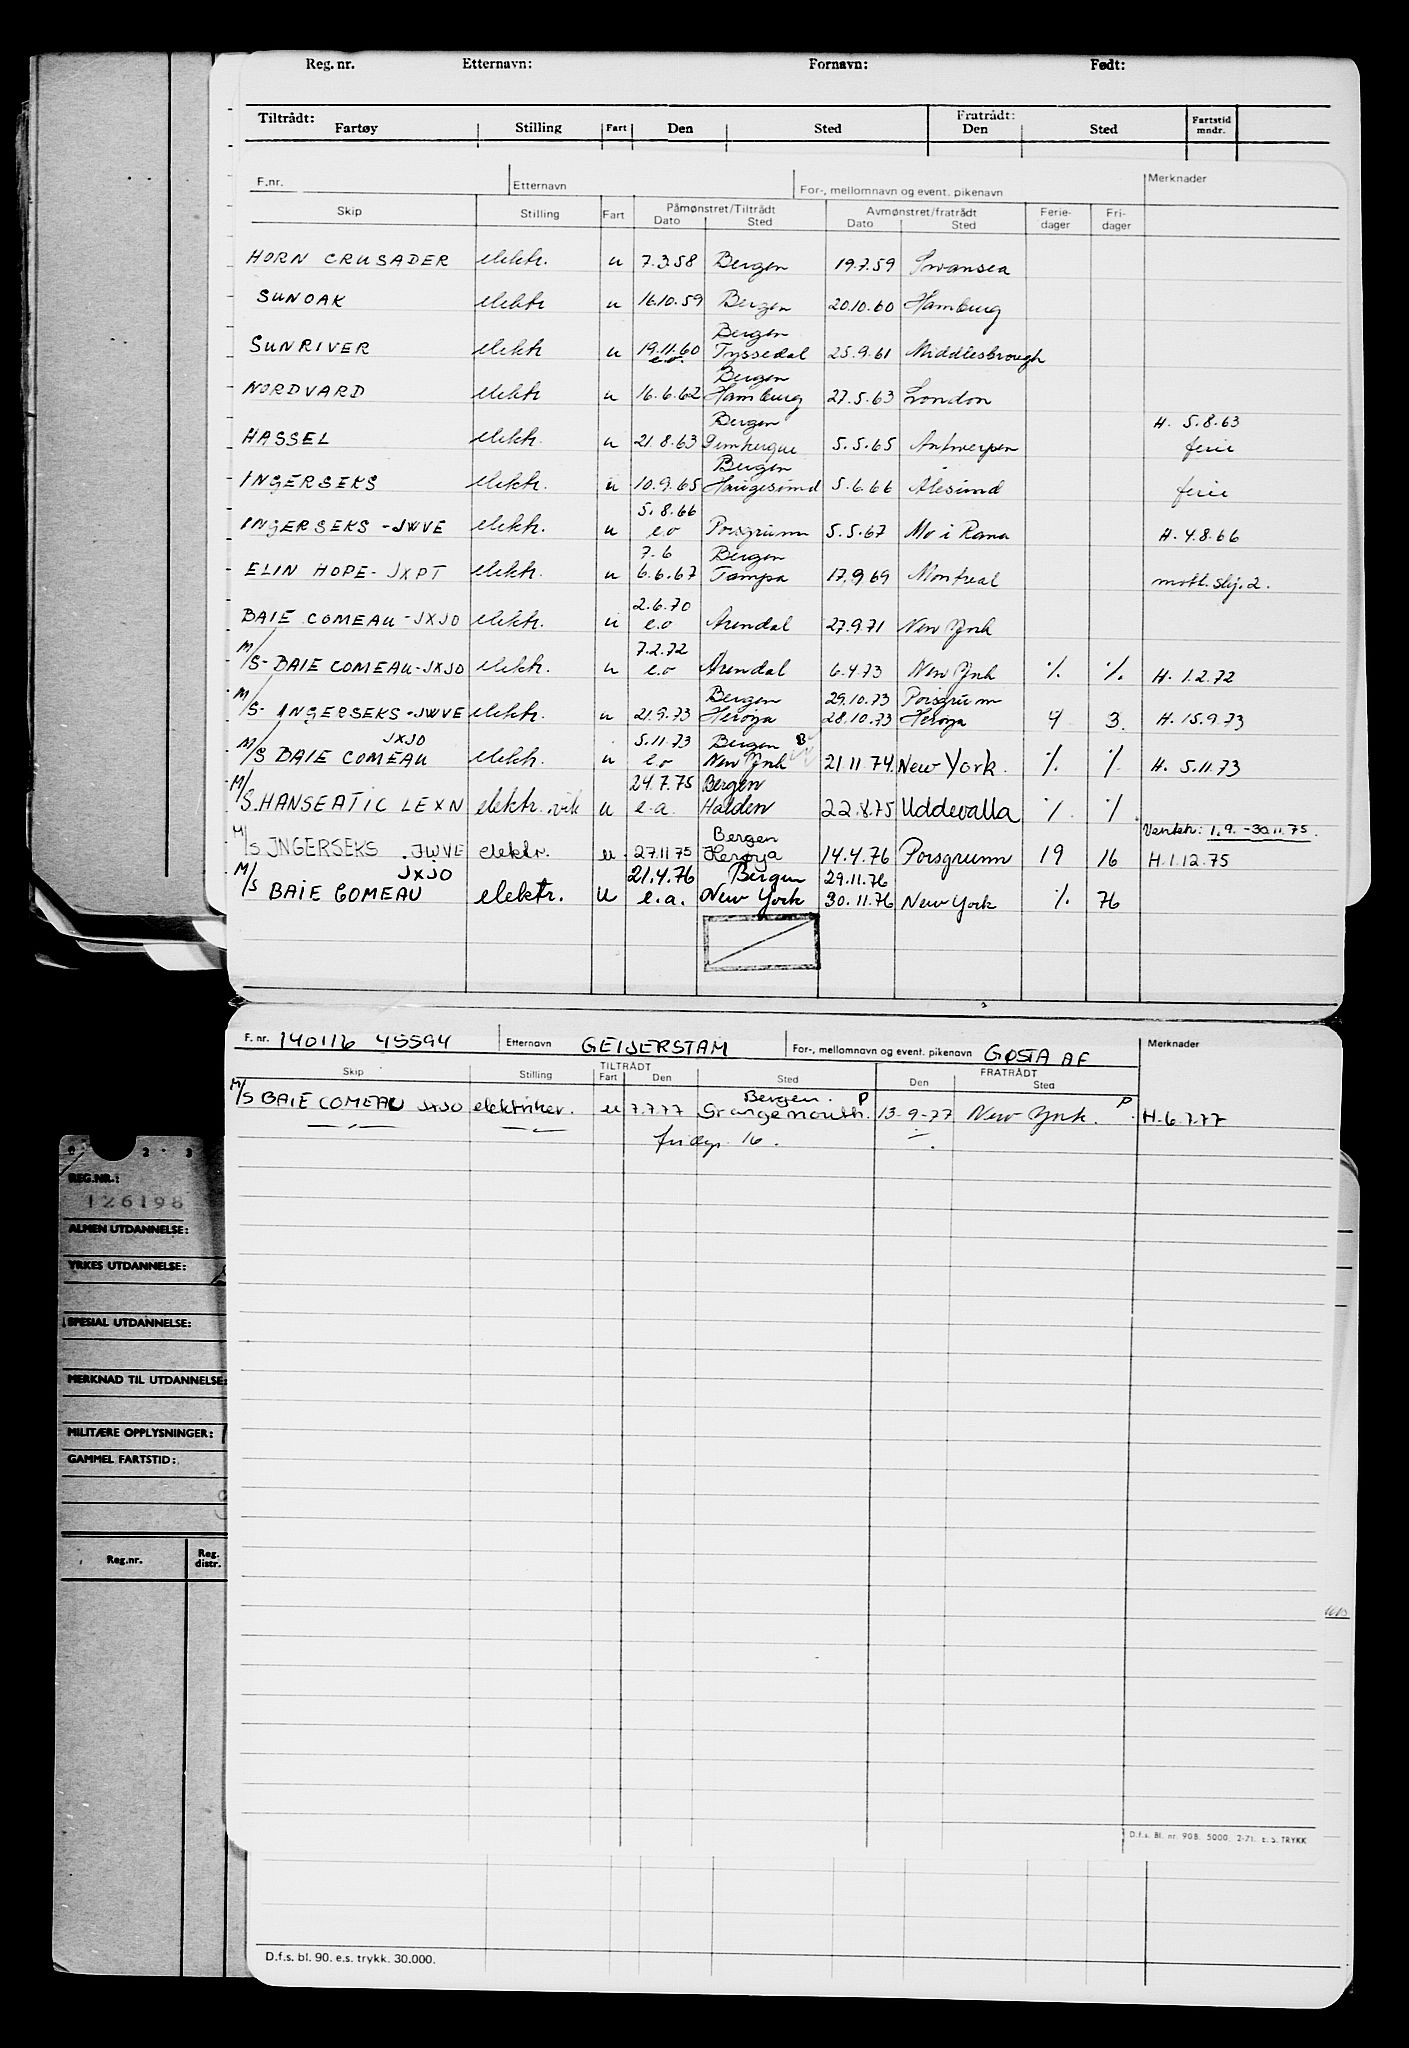 Reg. nr. Etternavn: Fornavn: Født:
Tiltrådt: Fratrådt: Fartstid
Fartøy Stilling Fart Den Sted Den Sted mndr.
F.nr. Etternavn For-, mellomnavn og event. pikenavn Merknader
Skip Stilling Fart Påmønstret/Tiltrådt Avmønstret/fratrådt Ferie- Fri-
Dato Sted Dato Sted dager dager
HORN CRUSADER elektr. u 7.3.58 Bergen 19.7.59 Swansea
SUNOAK elektr u 16.10.59 Bergen 20.10.60 Hamburg
Bergen
SUNRIVER elektr u 19.11.60 Tyssedal 25.9.61 Middlesbrough
e.o.
Bergen
NORDVARD elektr u 16.6.62 Hamburg 27.5.63 London
Bergen H. 5.8.63
HASSEL elektr. u 21.8.63 5.5.65 Antwerpen ferie
Bergen
INGERSEKS elektr. u 10.9.65 Haugesund 5.6.66 Ålesund ferie
5.8.66
INGERSEKS - JWVE elektr. u e.o Porsgrunn 5.5.67 Mo i Rana H. 4.8.66
7.6 Bergen
ELIN HOPE - JXPT elektr. u 6.6.67 Tampa 17.9.69 Montreal mott. skj. 2.
2.6.70
BAIE COMEAU - JXJO elektr. u e.o Arendal 27.9.71 New York
7.2.72
M/S - BAIE COMEAU - JXJO elektr. u e.o Arendal 6.4.73 New York ·/. ·/. H. 1.2.72
Bergen 29.10.73 Porsgrunn
M/S - INGERSEKS - JWVE elektr. u 21.9.73 Herøya 28.10.73 Herøya 4 3 H. 15.9.73
JXJO 5.11.73 Bergen
M/S BAIE COMEAU elektr. u e.o New York 21.11.74 New York. ·/. ·/. H. 5.11.73
24.7.75 Bergen
M/S. HANSEATIC LEXN elektr. vik u e.a. Halden 22.8.75 Uddevalla ·/. ·/.
Bergen Ventetr: 1.9. - 30.11.75.
M/S INGERSEKS . JWVE elektr. u. 27.11.75 Herøya 14.4.76 Porsgrunn 19 16 H. 1.12.75
JXJO 21.4.76 Bergen 29.11.76
M/S BAIE COMEAU elektr. u e.a. New York 30.11.76 New York ·/. 76
F. nr. 140116 45594 Etternavn GEIJERSTAM For-, mellomnavn og event. pikenavn GØSTA AF Merknader
TILTRÅDT FRATRÅDT
Skip Stilling Fart Den Sted Den Sted
Bergen. P P
M/S BAIE COMEAU JXJO elektriker. u 7.7.77 Grangemouth. 13-9-77 New York. H. 6.7.77
fridgr. 16.
0 2 3
REG.NR.:
126198
ALMEN UTDANNELSE:
YRKES UTDANNELSE:
SPESIAL UTDANNELSE:
MERKNAD TIL UTDANNELSE:
MILITÆRE OPPLYSNINGER:
GAMMEL FARTSTID:
Reg.nr. Reg. distr.
D.f.s. Bl. nr. 90B. 5000. 2-71. E. S. TRYKK
D.f.s. bl. 90. e.s. trykk. 30.000.